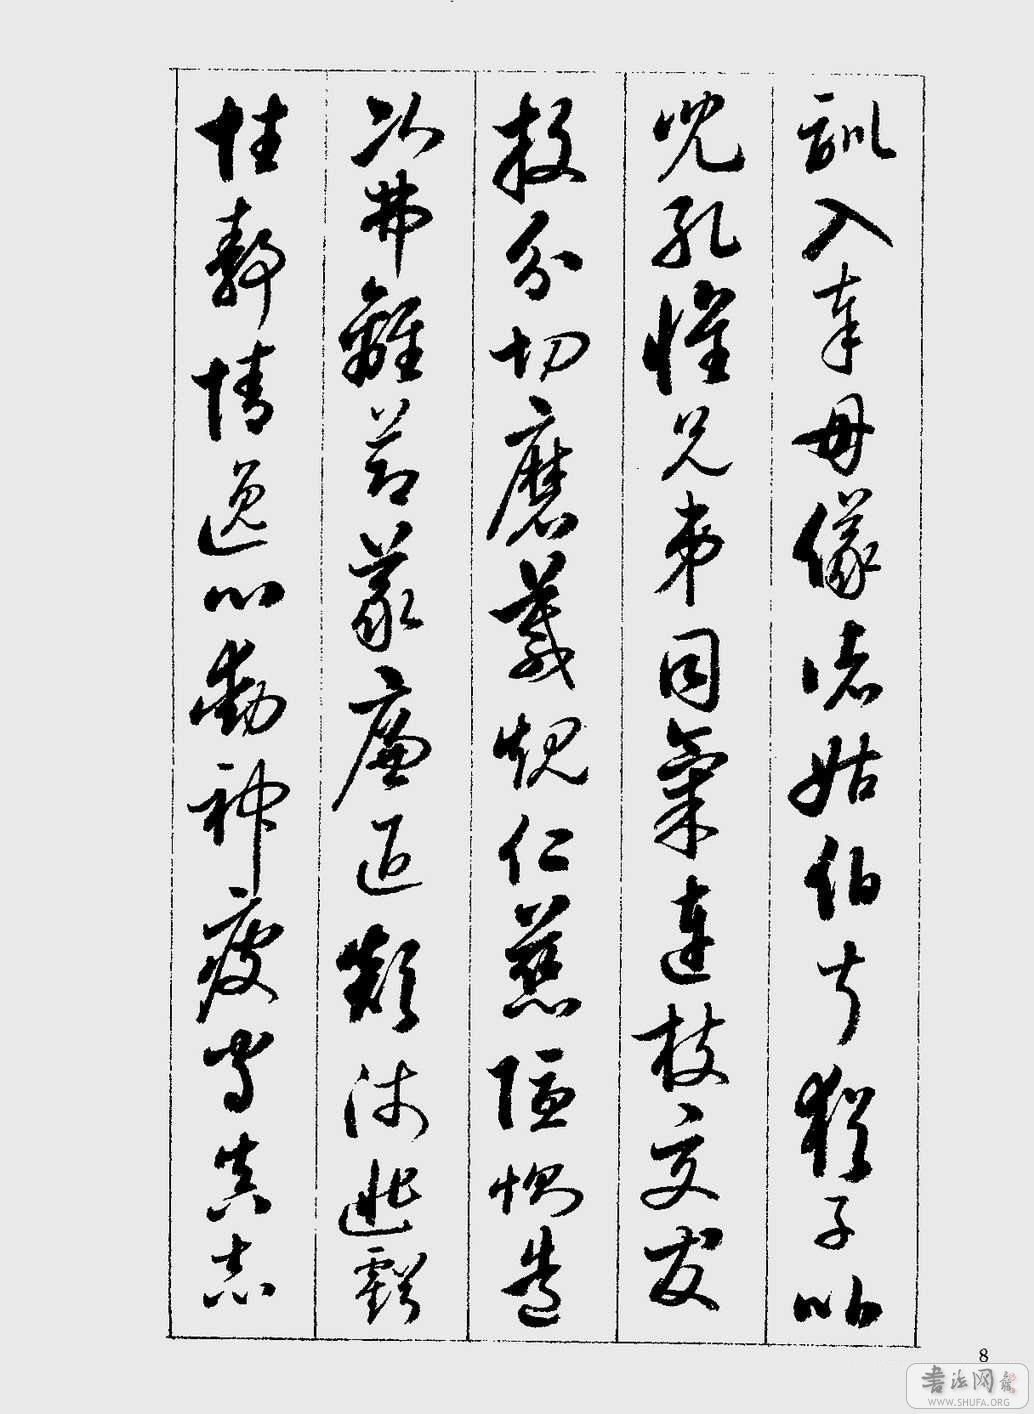 訓入奉母儀諸姑伯叔猶子比
兒孔懷兄弟同氣連枝交友
投分切磨箴規仁慈隱惻造
次弗離節義廉退顛沛匪虧
性靜情逸心動神疲守真志
8
書法网
WWW.SHUFA.ORG